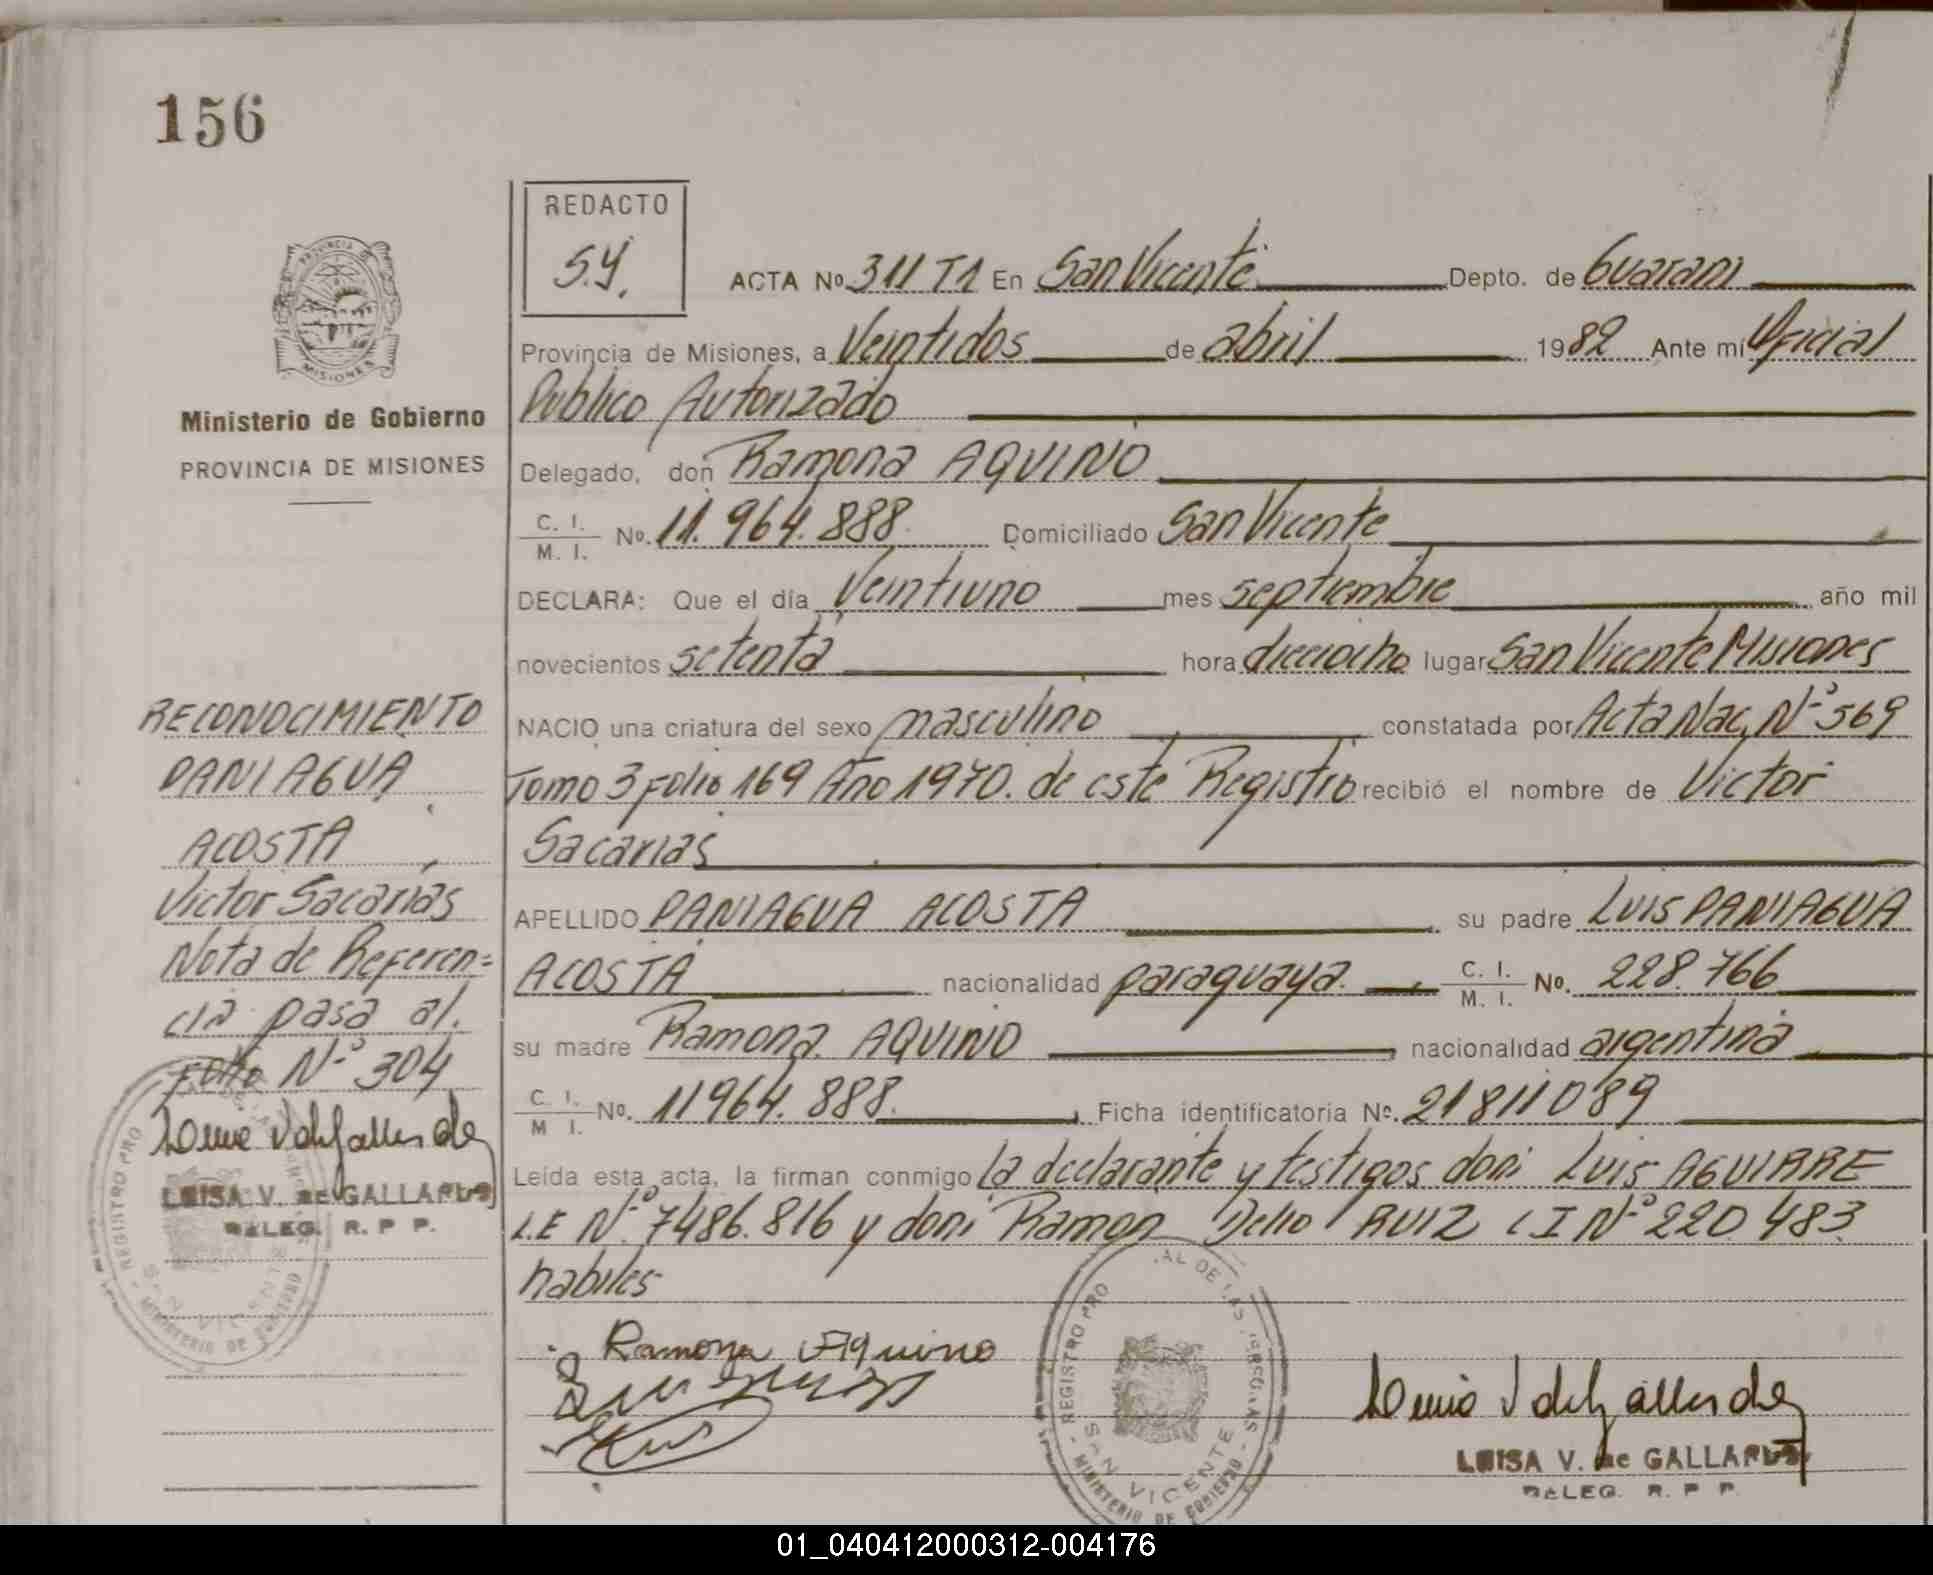 156
REDACTO
S.Y.
ACTA No. 311 T1 En San Vicente Depto. de Guarani
Provincia de Misiones, a Veintidos de abril 1982 Ante mí Oficial
Publico Autorizado
Delegado, don Ramona AQUINO
C. I. / M. I. No. 11.964.888. Domiciliado San Vicente
DECLARA: Que el día Veintiuno mes septiembre año mil
novecientos setenta hora dieciocho lugar San Vicente Misiones
NACIO una criatura del sexo masculino constatada por Acta Nac. Nº 569
Tomo 3 folio 169 Año 1970. de este Registro recibió el nombre de Victor
Sacarias
APELLIDO PANIAGUA ACOSTA su padre Luis PANIAGUA
ACOSTA nacionalidad paraguaya. C. I. / M. I. No. 228.766
su madre Ramona AQUINO nacionalidad argentina
C. I. / M I. No. 11964.888. Ficha identificatoria Nº. 21811089
Leída esta acta, la firman conmigo la declarante y testigos don: Luis AGUIRRE
L.E Nº 7486.816 y don: Ramon Delio RUIZ C I Nº 220.483
habiles
Ramona Aquino
REGISTRO PRO AL DE LAS PERSONAS
SAN VICENTE
MINISTERIO DE GOBIERNO
LUISA V. de GALLARDO
DELEG. R. P P.
PROVINCIA
MISIONES
Ministerio de Gobierno
PROVINCIA DE MISIONES
RECONOCIMIENTO
PANIAGUA
ACOSTA
Victor Sacarias
Nota de Referen=
cia pasa al.
Folio Nº 304
LUISA V. de GALLARDO
DELEG. R. P P.
REGISTRO PRO
SAN VICENTE
MINISTERIO DE GOBIERNO
01_040412000312-004176